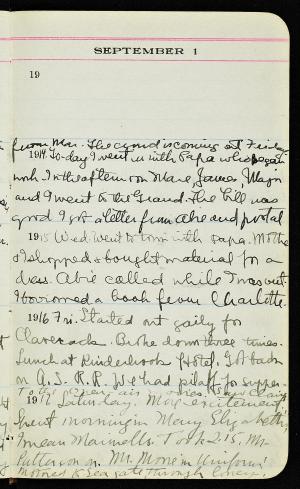 SEPTEMBER 1
19
from Mar. The crowd is coming at Friday
1914 To-day I went in with Papa who began
work. In the afternoon Marie, James, Major
and I went to the Grand. The bill was
good I got a letter from Abie and postal
1915 Wed. Went to town with Papa. Mother
& I shopped & bought material for a
dress. Abie called while I was out.
I borrowed a book from Charlotte.
1916 Fri. Started out gaily for
Claverack. Broke down three times.
Lunch at Kinderhook Hotel. Got back
on A.S.R.R. We had pilaf for supper.
1917 Saturday. More excitement!
Spent morning in Mary Elizabeth's,
Took 2.15. Mr.
Patterson on. Mr. Morse in uniform
Motored to Sea gate through